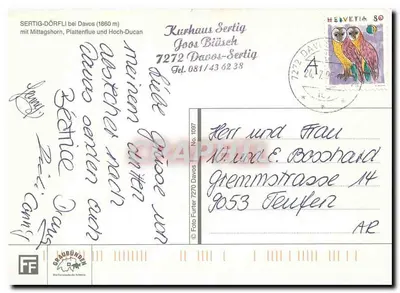 SERTIG-DÖRFLI bei Davos (1860 m)
mit Mittagshorn, Plattenflue und Hoch-Ducan
Kurhaus Sertig
Joos Biäsch
7272 Davos-Sertig
Tel. 081/43 62 38
HELVETIA 80
7272 DAVOS
A
Liebe Grüsse von
meinem
abstecher nach
Davos senden euch
© Foto Furter 7270 Davos No. 1097
Herr und Frau
W und E. Bosshard
Gremmstrasse 14
9053 Teufen
AR
FF
GRAUBÜNDEN